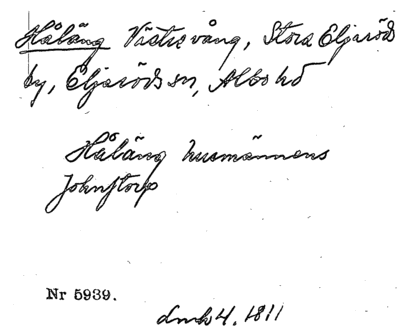 Håläng Västre vång, Stora Eljaröds
by, Eljaröds sn, Albo hd
Håläng husmännens
Johnstorp
Nr 5939.
dmk 4, 1811